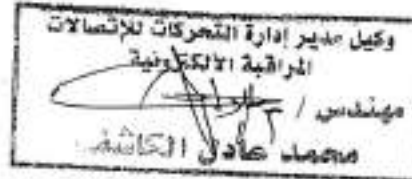 وكيل مدير إدارة التحركات للإتصالات
المراقبة الالكترونية
مهندس /
محمد عادل الكاشف